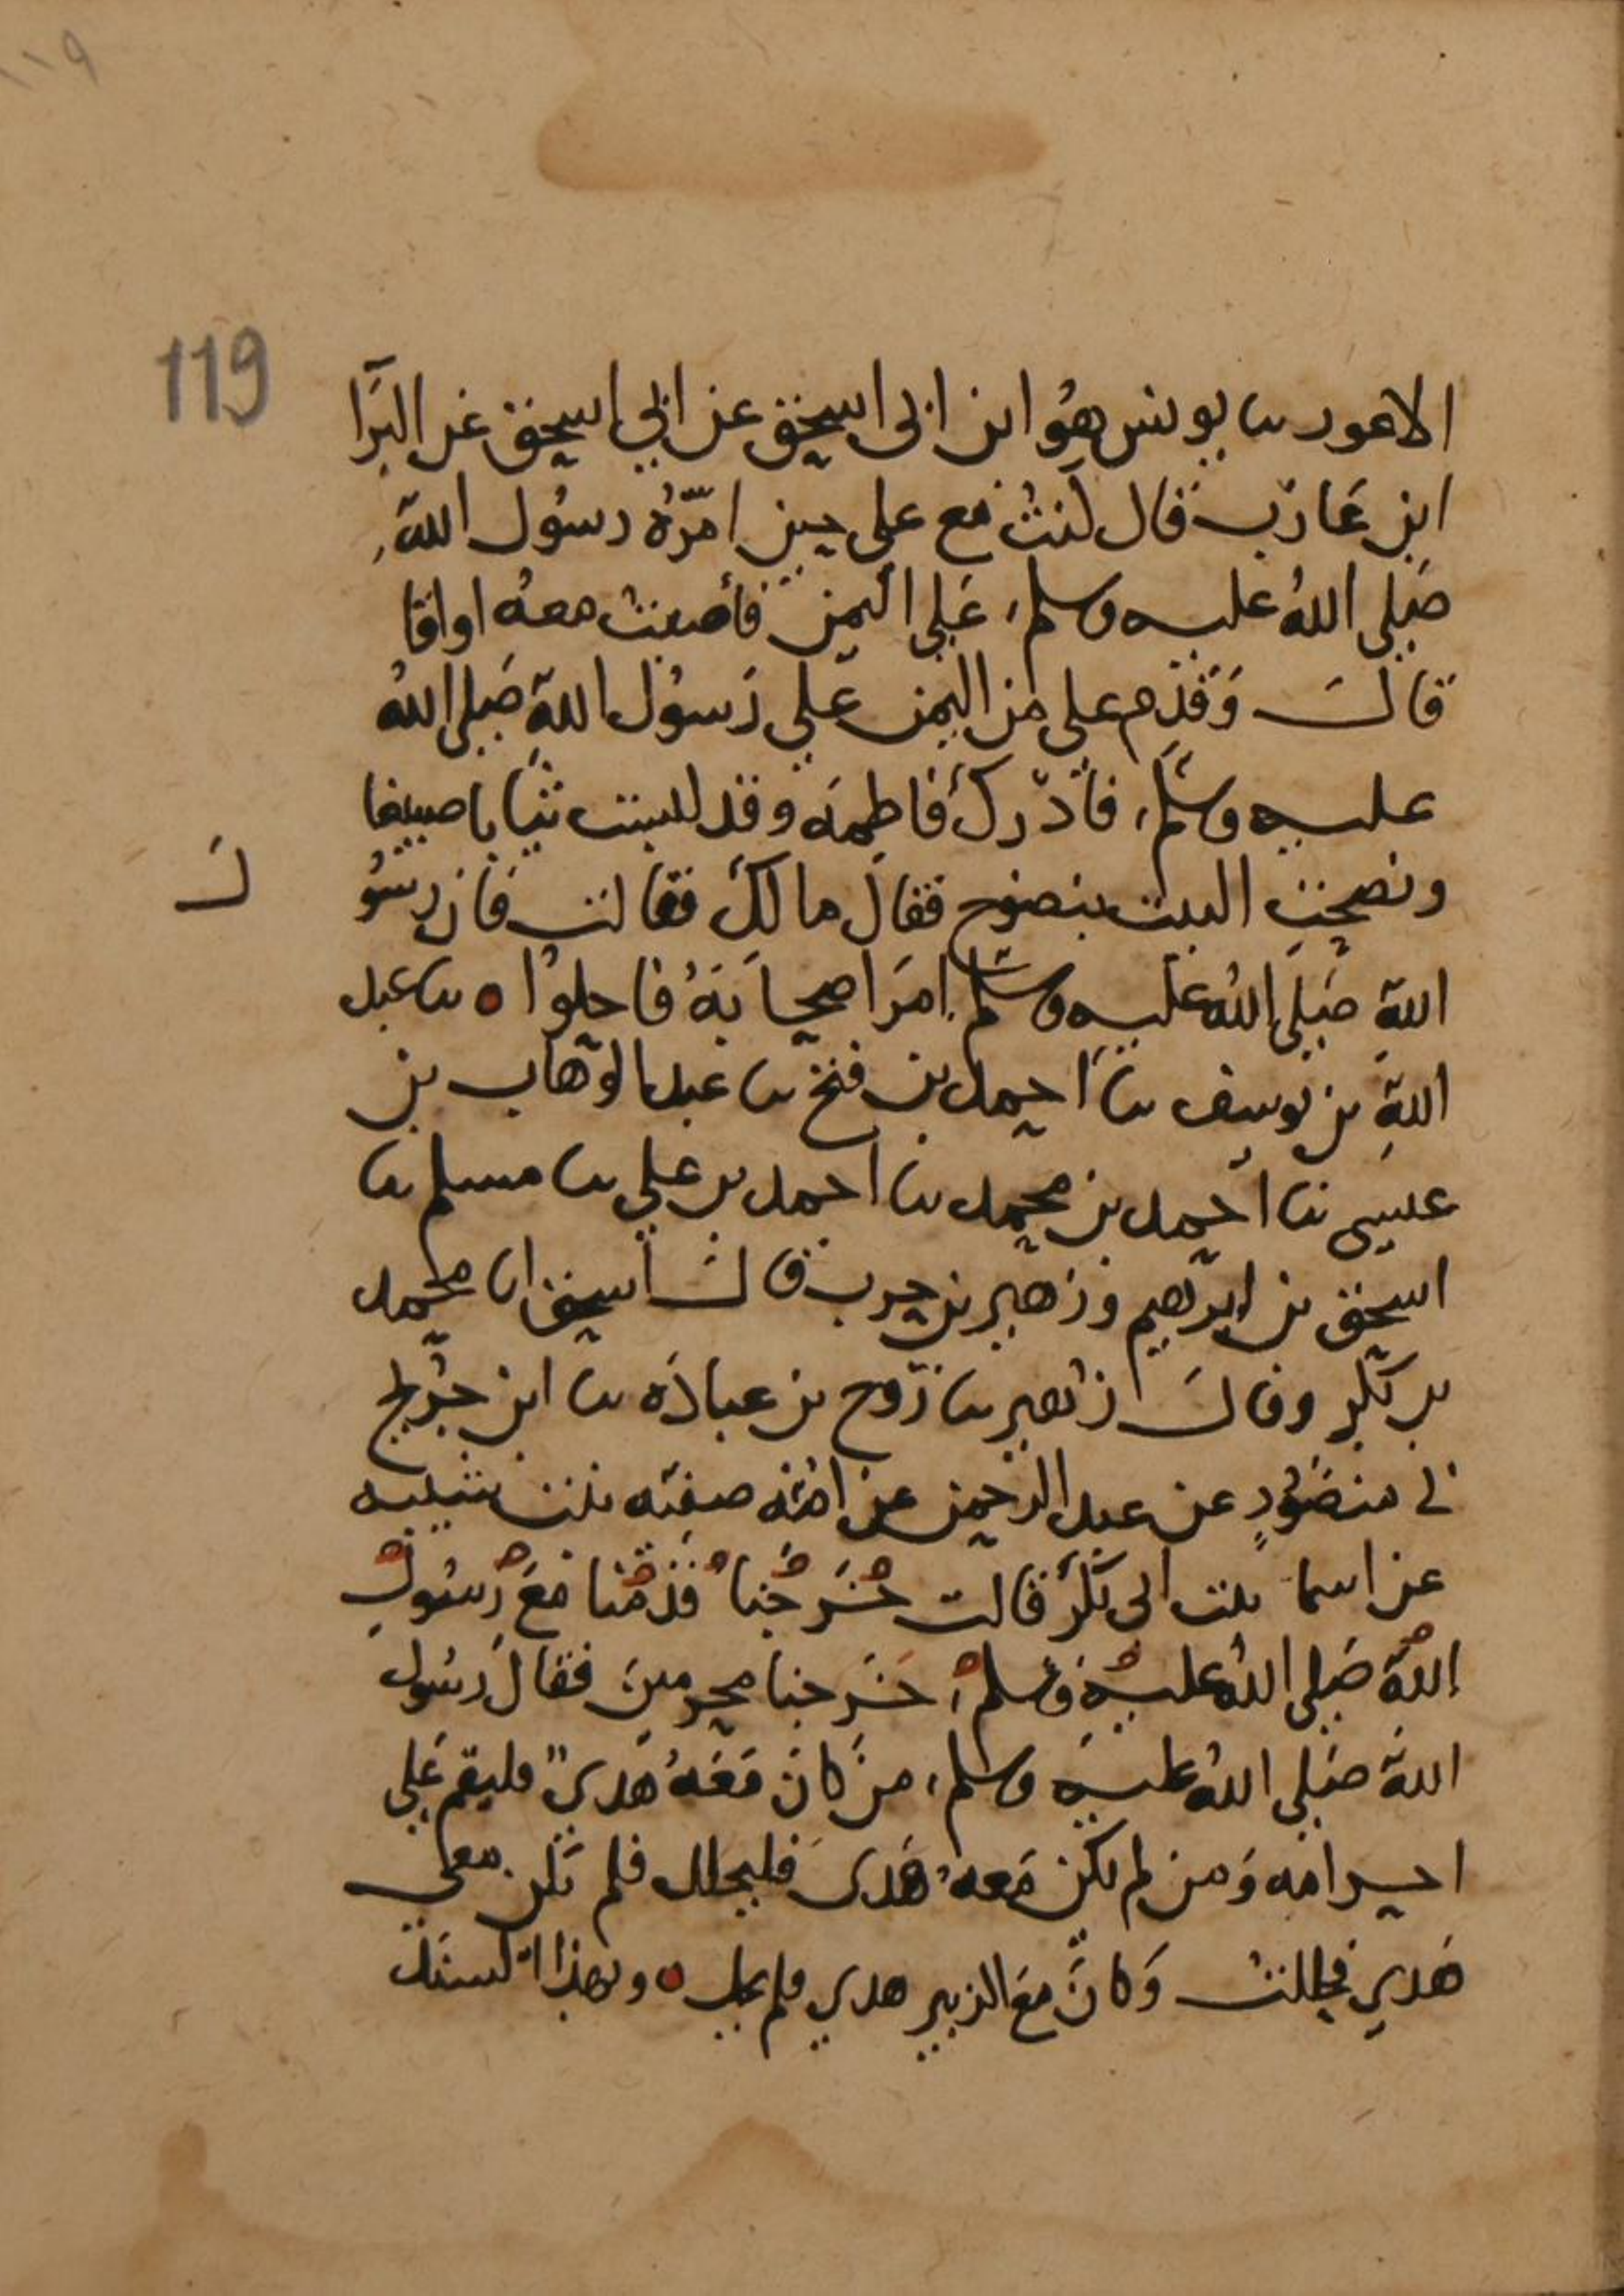 ١١٩
119
الاعور نا يونس هو ابن ابى اسحق عن ابي اسحق عن البرا
ابن عازب قال كنت مع علي حين امره رسول الله
صلى الله عليه وسلم علي اليمن فأصبت معه اواقا
قال وقدم علي من اليمن علي رسول الله صلى الله
عليه وسلم فأدرك فاطمه وقد لبست ثيابا صبيغا
ونضحت البيت بنضوح فقال ما لك فقالت فان رسو
ل
الله صلى الله عليه وسلم امر اصحابه فاحلوا ه نا عبد
الله بن يوسف نا احمد بن فتح نا عبد الوهاب بن
عيسى نا احمد بن محمد نا احمد بن علي نا مسلم نا
اسحق بن ابرهيم وزهير بن حرب قال اسحق انا محمد
بن بكر وقال زهير نا روح بن عباده نا ابن جريج
ني منصور عن عبد الرحمن عن امه صفيه بنت شيبه
عن اسما بنت ابى بكر قالت خرجنا قدمنا مع رسول
الله صلى الله عليه وسلم خرجنا محرمين فقال رسول
الله صلى الله عليه وسلم من كان معه هدي فليقم علي
احرامه ومن لم يكن معه هدى فليحلل فلم يكن معي
هدي فحللت وكان مع الزبير هدي فلم يحل ه وبهذا السند